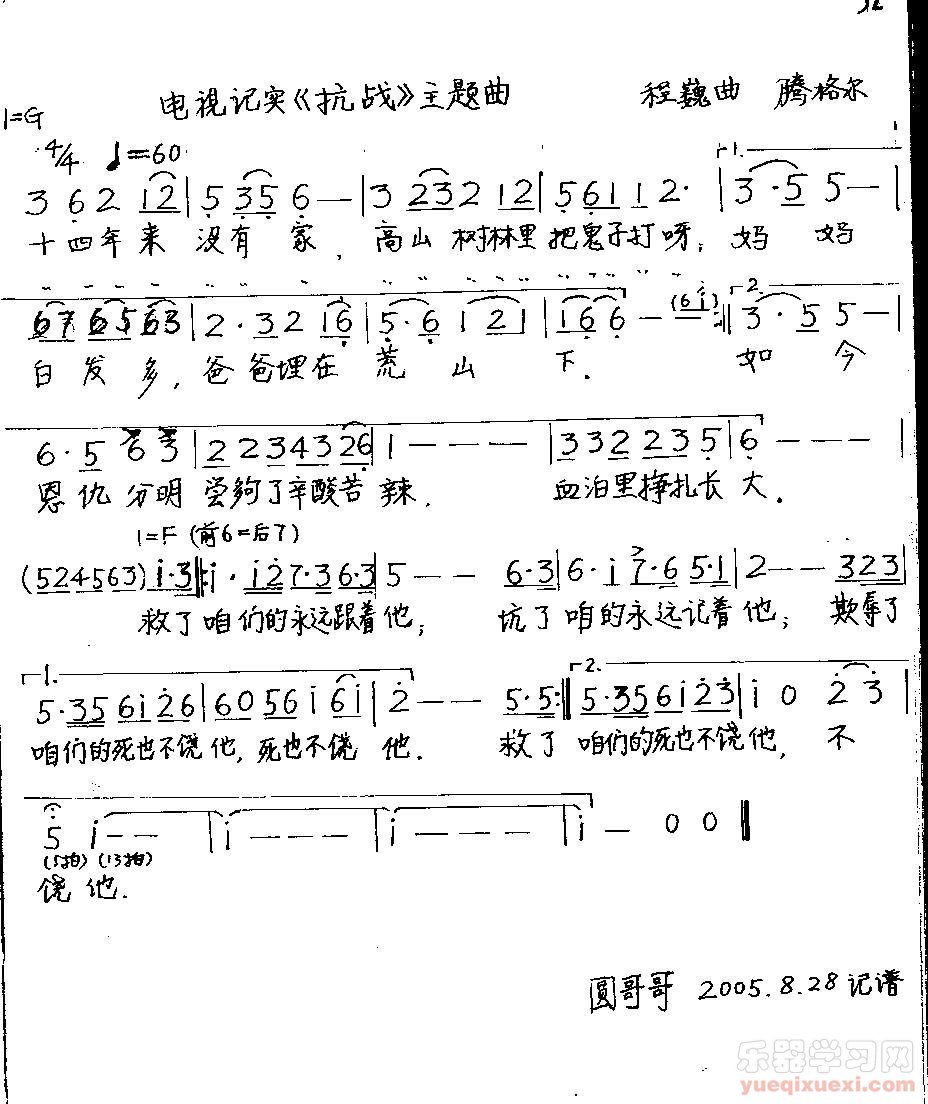 电视记实《抗战》主题曲 程巍曲 腾格尔
1=G
4/4 ♩=60
3 6 2 12 | 5 35 6 — | 3 23 2 12 | 5 61 1 2· | 1. 3·5 5 — |
十四年来 没有家, 高山树林里把鬼子打呀; 妈妈
67 65 63 | 2·3 2 16 | 5·6 1 21 | 16 6 — (61) :‖ 2. 3·5 5 — |
白发多, 爸爸埋在荒山下. 如今
6·5 6 3 | 2 2 3 4 3 2 6 | 1 — — — | 3 3 2 2 3 5 | 6 — — — |
恩仇分明 尝够了辛酸苦辣. 血泊里挣扎长大.
1=F (前6=后7)
(524563) i·3 ‖: i·i2 7·3 6·3 | 5 — — 6·3 | 6·i 7·6 5·1 | 2 — — 323 |
救了咱们的永远跟着他; 坑了咱的永远记着他; 欺辱了
1. 5·35 6i26 | 60 56 i 6i | 2 — — 5·5 :‖ 2. 5·35 6i23 | i 0 2 3 |
咱们的死也不饶他, 死也不饶他. 救了咱们的死也不饶他, 不
5 i — — | i — — — | i — — — | i — 0 0 ‖
(5拍) (13拍)
饶他.
圆哥哥 2005.8.28记谱
乐器学习网
yueqixuexi.com